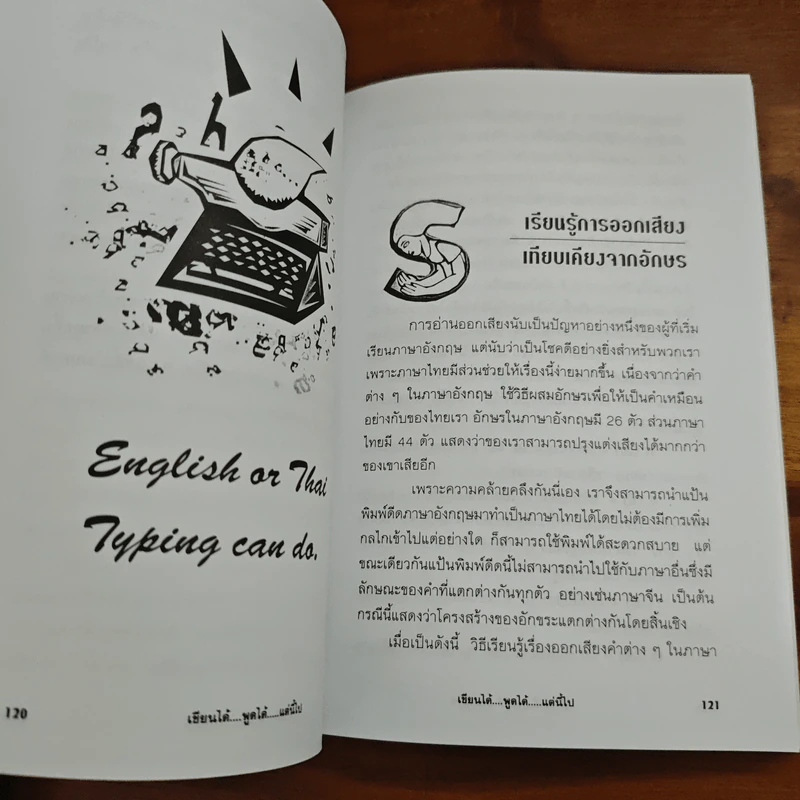 English or Thai
Typing can do.
120
เขียนได้....พูดได้.....แต่นี้ไป
เรียนรู้การออกเสียง
เทียบเคียงจากอักษร
การอ่านออกเสียงนับเป็นปัญหาอย่างหนึ่งของผู้ที่เริ่ม
เรียนภาษาอังกฤษ แต่นับว่าเป็นโชคดีอย่างยิ่งสำหรับพวกเรา
เพราะภาษาไทยมีส่วนช่วยให้เรื่องนี้ง่ายมากขึ้น เนื่องจากว่าคำ
ต่าง ๆ ในภาษาอังกฤษ ใช้วิธีผสมอักษรเพื่อให้เป็นคำเหมือน
อย่างกับของไทยเรา อักษรในภาษาอังกฤษมี 26 ตัว ส่วนภาษา
ไทยมี 44 ตัว แสดงว่าของเราสามารถปรุงแต่งเสียงได้มากกว่า
ของเขาเสียอีก
เพราะความคล้ายคลึงกันนี่เอง เราจึงสามารถนำแป้น
พิมพ์ดีดภาษาอังกฤษมาทำเป็นภาษาไทยได้โดยไม่ต้องมีการเพิ่ม
กลไกเข้าไปแต่อย่างใด ก็สามารถใช้พิมพ์ได้สะดวกสบาย แต่
ขณะเดียวกันแป้นพิมพ์ดีดนี้ไม่สามารถนำไปใช้กับภาษาอื่นซึ่งมี
ลักษณะของคำที่แตกต่างกันทุกตัว อย่างเช่นภาษาจีน เป็นต้น
กรณีนี้แสดงว่าโครงสร้างของอักขระแตกต่างกันโดยสิ้นเชิง
เมื่อเป็นดังนี้ วิธีเรียนรู้เรื่องออกเสียงคำต่าง ๆ ในภาษา
เขียนได้....พูดได้.....แต่นี้ไป
121